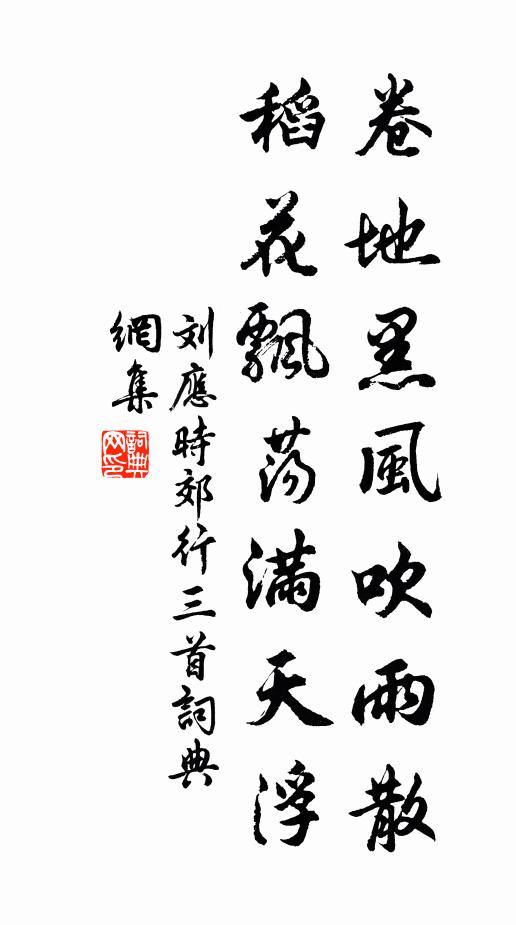 卷地黑風吹雨散
稻花飄荡滿天浮
刘應時郊行三首詞典
網集
詞典网印